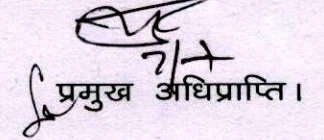 प्रमुख अधिप्राप्ति।